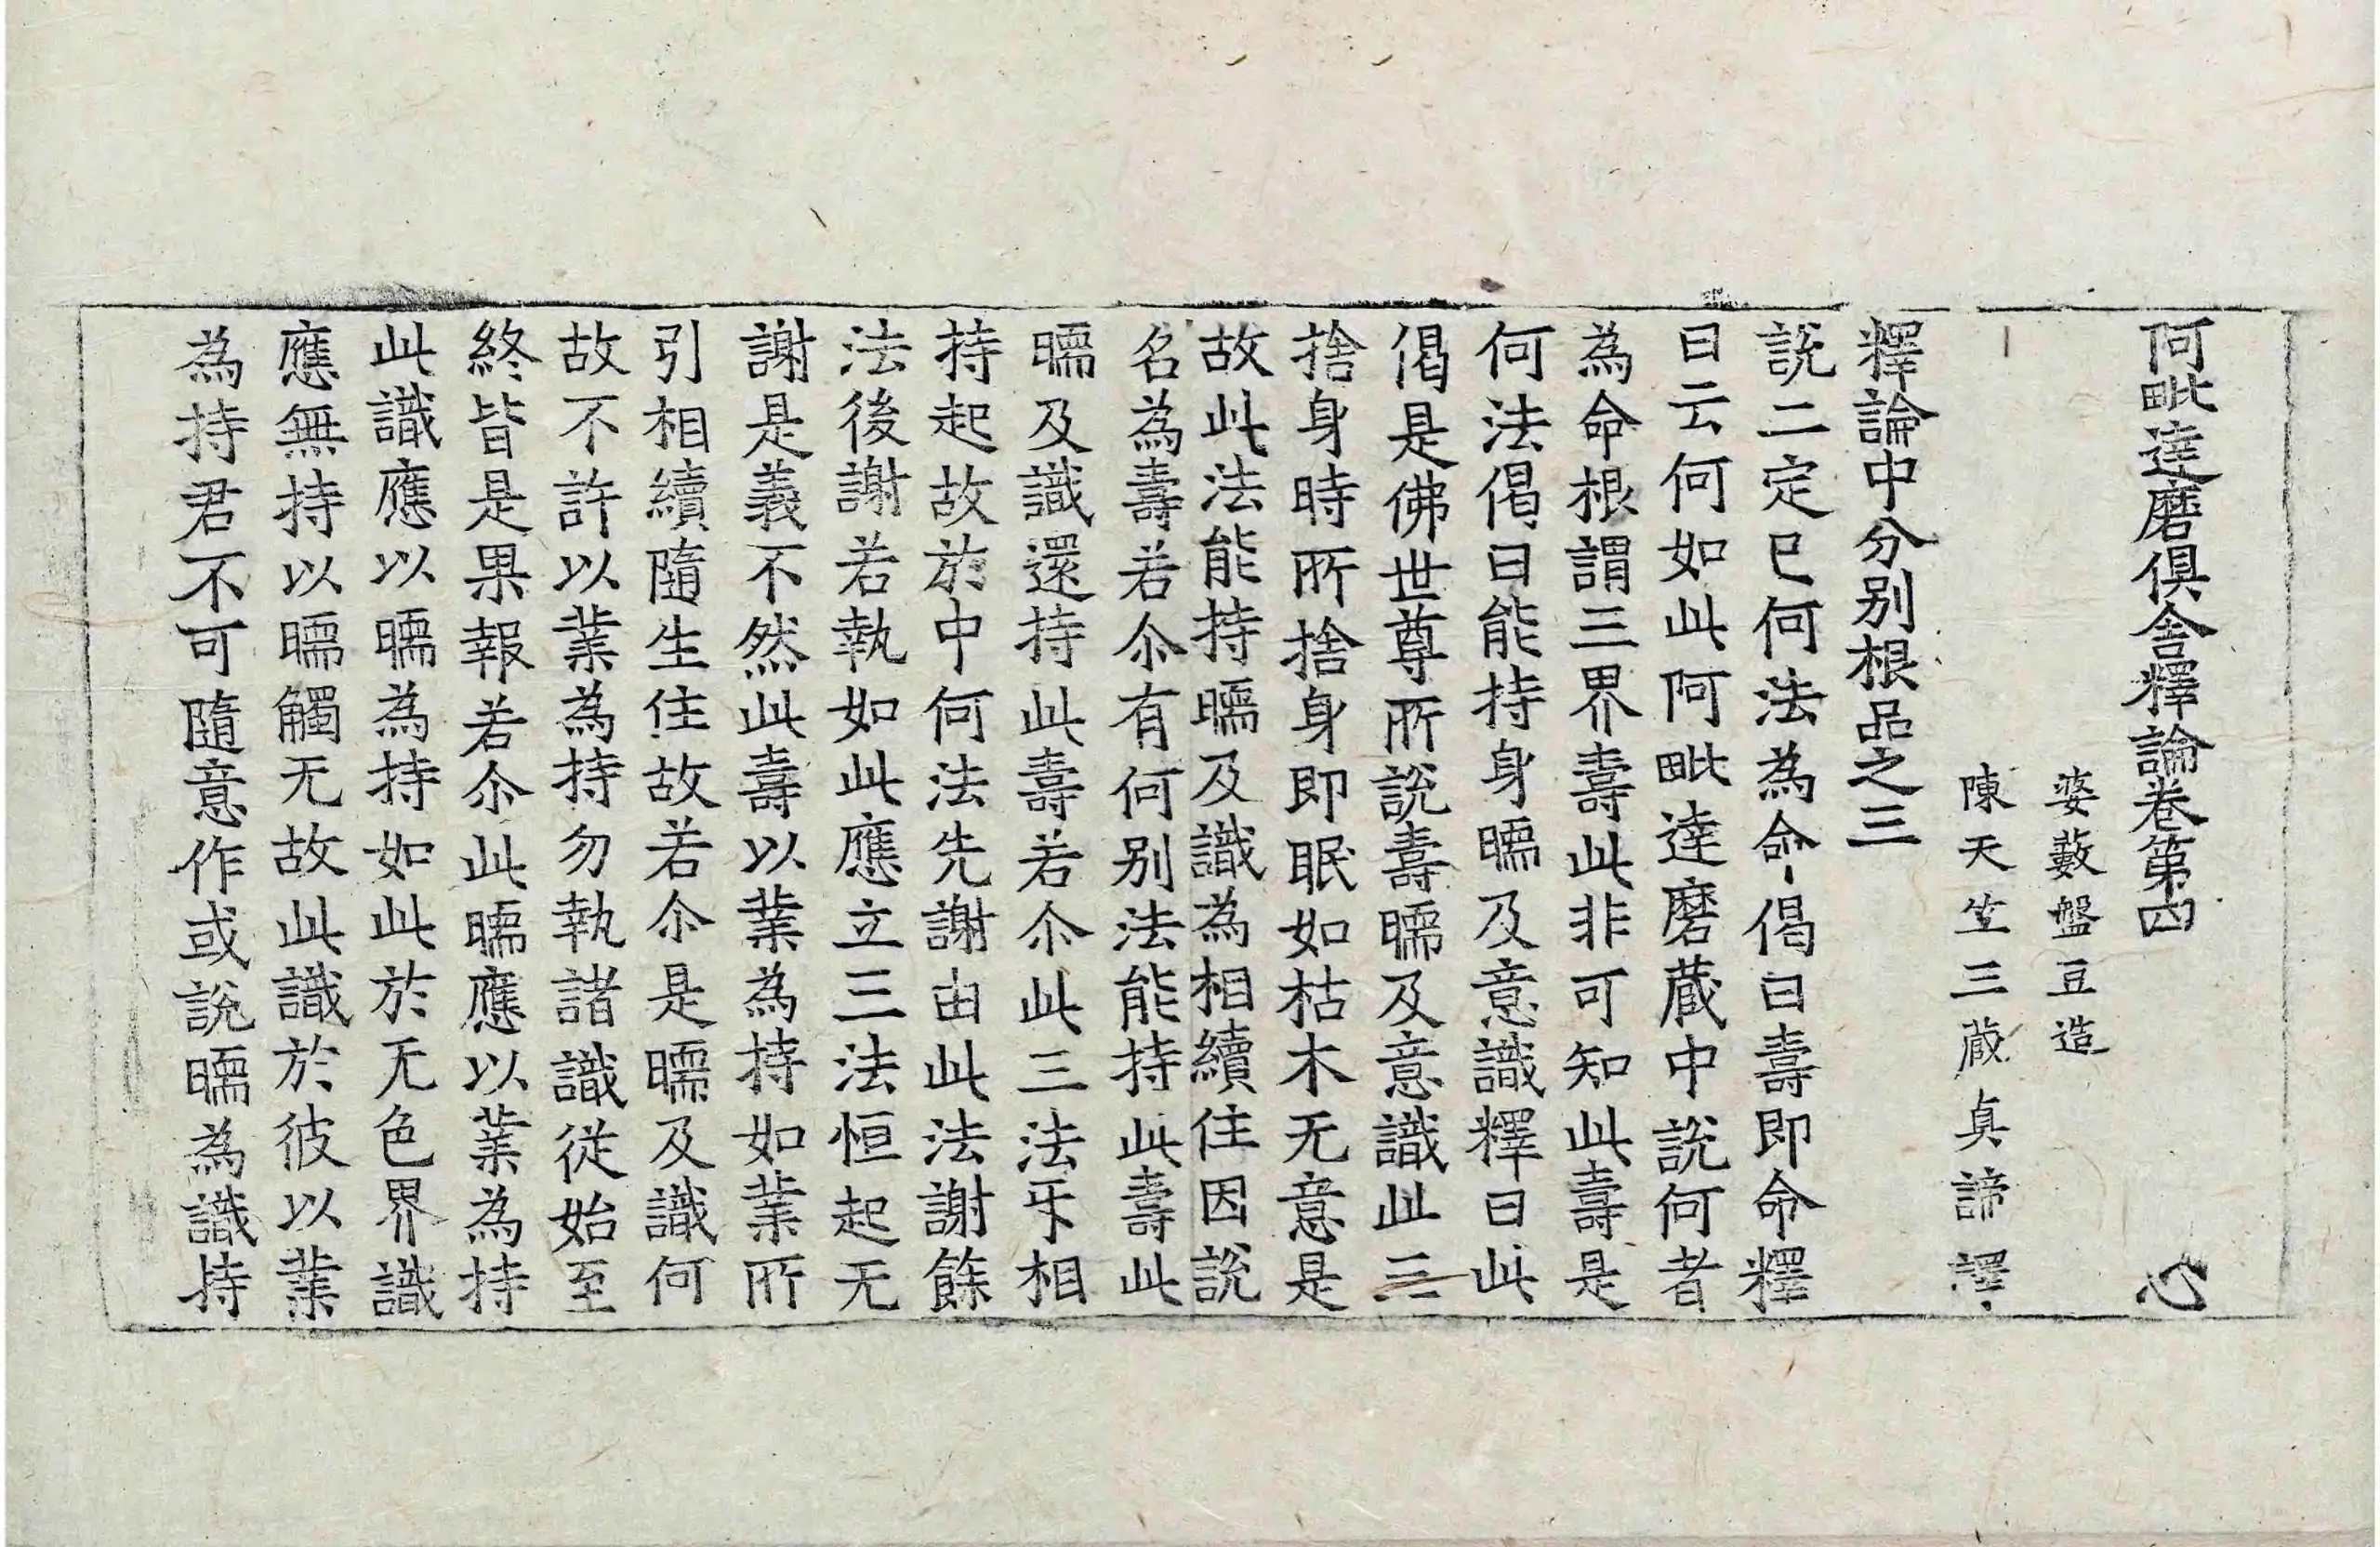 阿毗達磨俱舍釋論卷第四 心
婆藪盤豆造
陳天竺三藏真諦譯
釋論中分別根品之三
說二定已何法為命偈曰壽即命釋
曰云何如此阿毗達磨蔵中說何者
為命根謂三界壽此非可知此壽是
何法偈曰能持身暖及意識釋曰此
偈是佛世尊所說壽暖及意識此三
捨身時所捨身即眠如枯木无意是
故此法能持暖及識為相續住因說
名為壽若尒有何別法能持此壽此
暖及識還持此壽若尒此三法㸦相
持起故於中何法先謝由此法謝餘
法後謝若執如此應立三法恒起无
謝是義不然此壽以業為持如業所
引相續隨生住故若尒是暖及識何
故不許以業為持勿執諸識從始至
終皆是果報若尒此暖應以業為持
此識應以暖為持如此於无色界識
應無持以暖觸无故此識於彼以業
為持君不可隨意作或說暖為識持